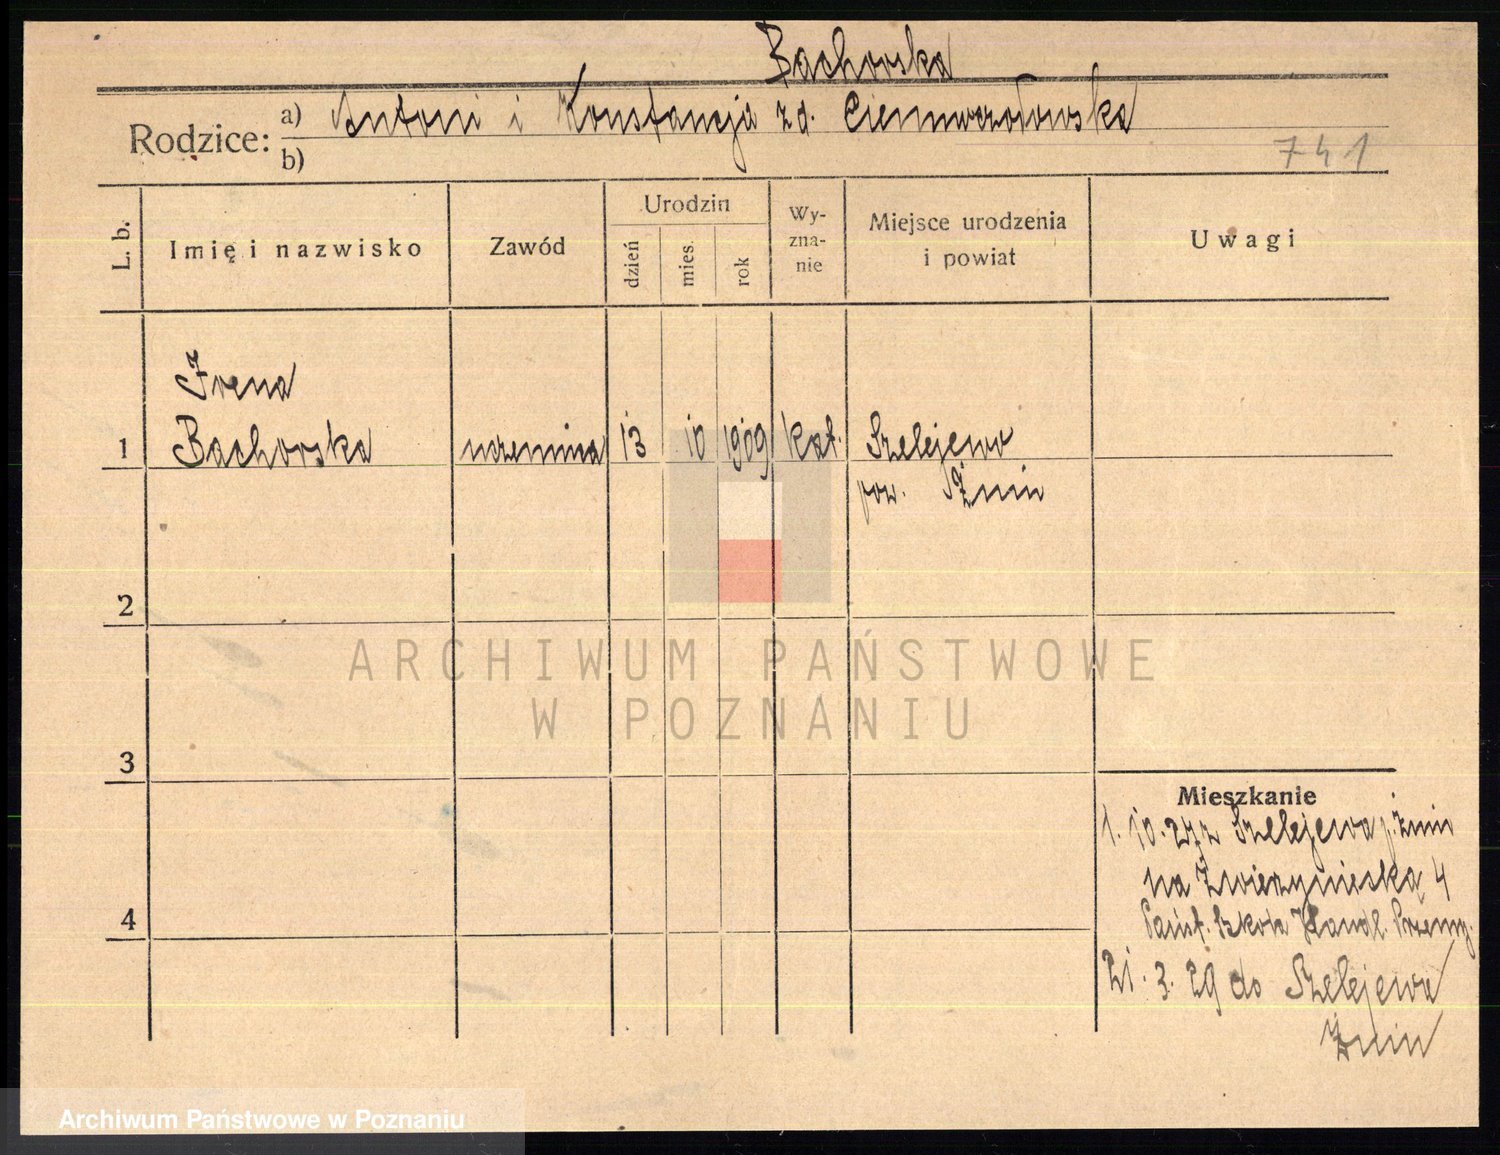 Bachorska
Rodzice: a) Antoni i Konstancja zd.
b)
741
L. b. Imię i nazwisko Zawód Urodzin dzień mies. rok Wy-zna-nie Miejsce urodzenia i powiat Uwagi
Irena
1 Bachorska uczennica 13 10 1909 kat. Szelejewo
pow. Żnin
2
ARCHIWUM PAŃSTWOWE
W POZNANIU
3
Mieszkanie
1. 10. 27 z Szelejewa p. Żnin
na Zwierzyniecką 4
4 Państ. Szkoła Handl. Przemy.
21. 3. 29 do Szelejewa
Żnin
Archiwum Państwowe w Poznaniu